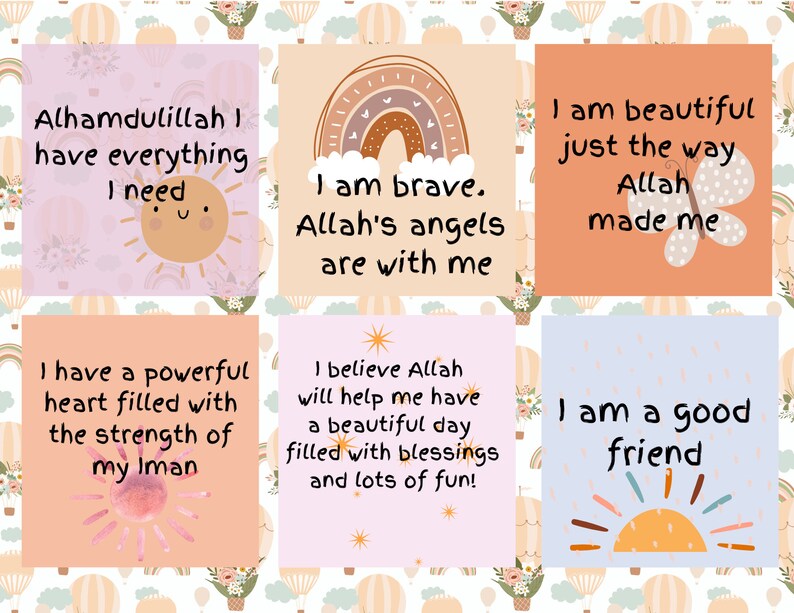 Alhamdulillah I
have everything
I need
I am brave.
Allah's angels
are with me
I am beautiful
just the way
Allah
made me
I have a powerful
heart filled with
the strength of
my Iman
I believe Allah
will help me have
a beautiful day
filled with blessings
and lots of fun!
I am a good
friend